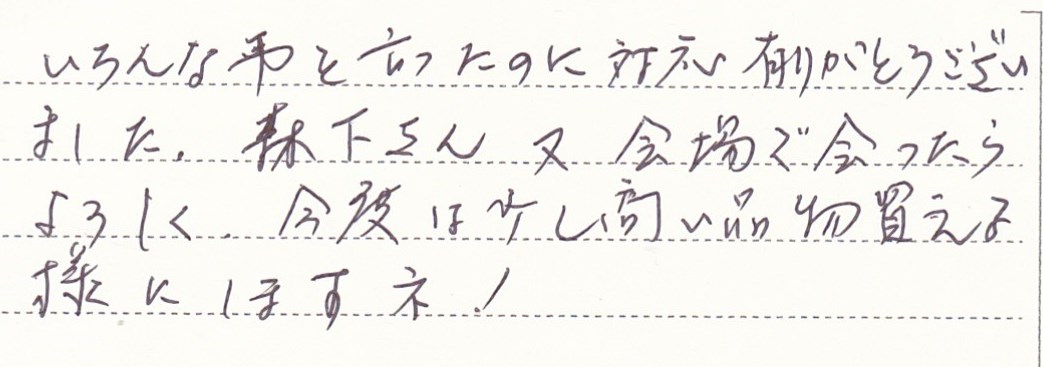 いろんな事を言ったのに対応有りがとうござい
ました。森下さん又会場で会ったら
よろしく。今度は少し高い品物買える
様にしますネ!